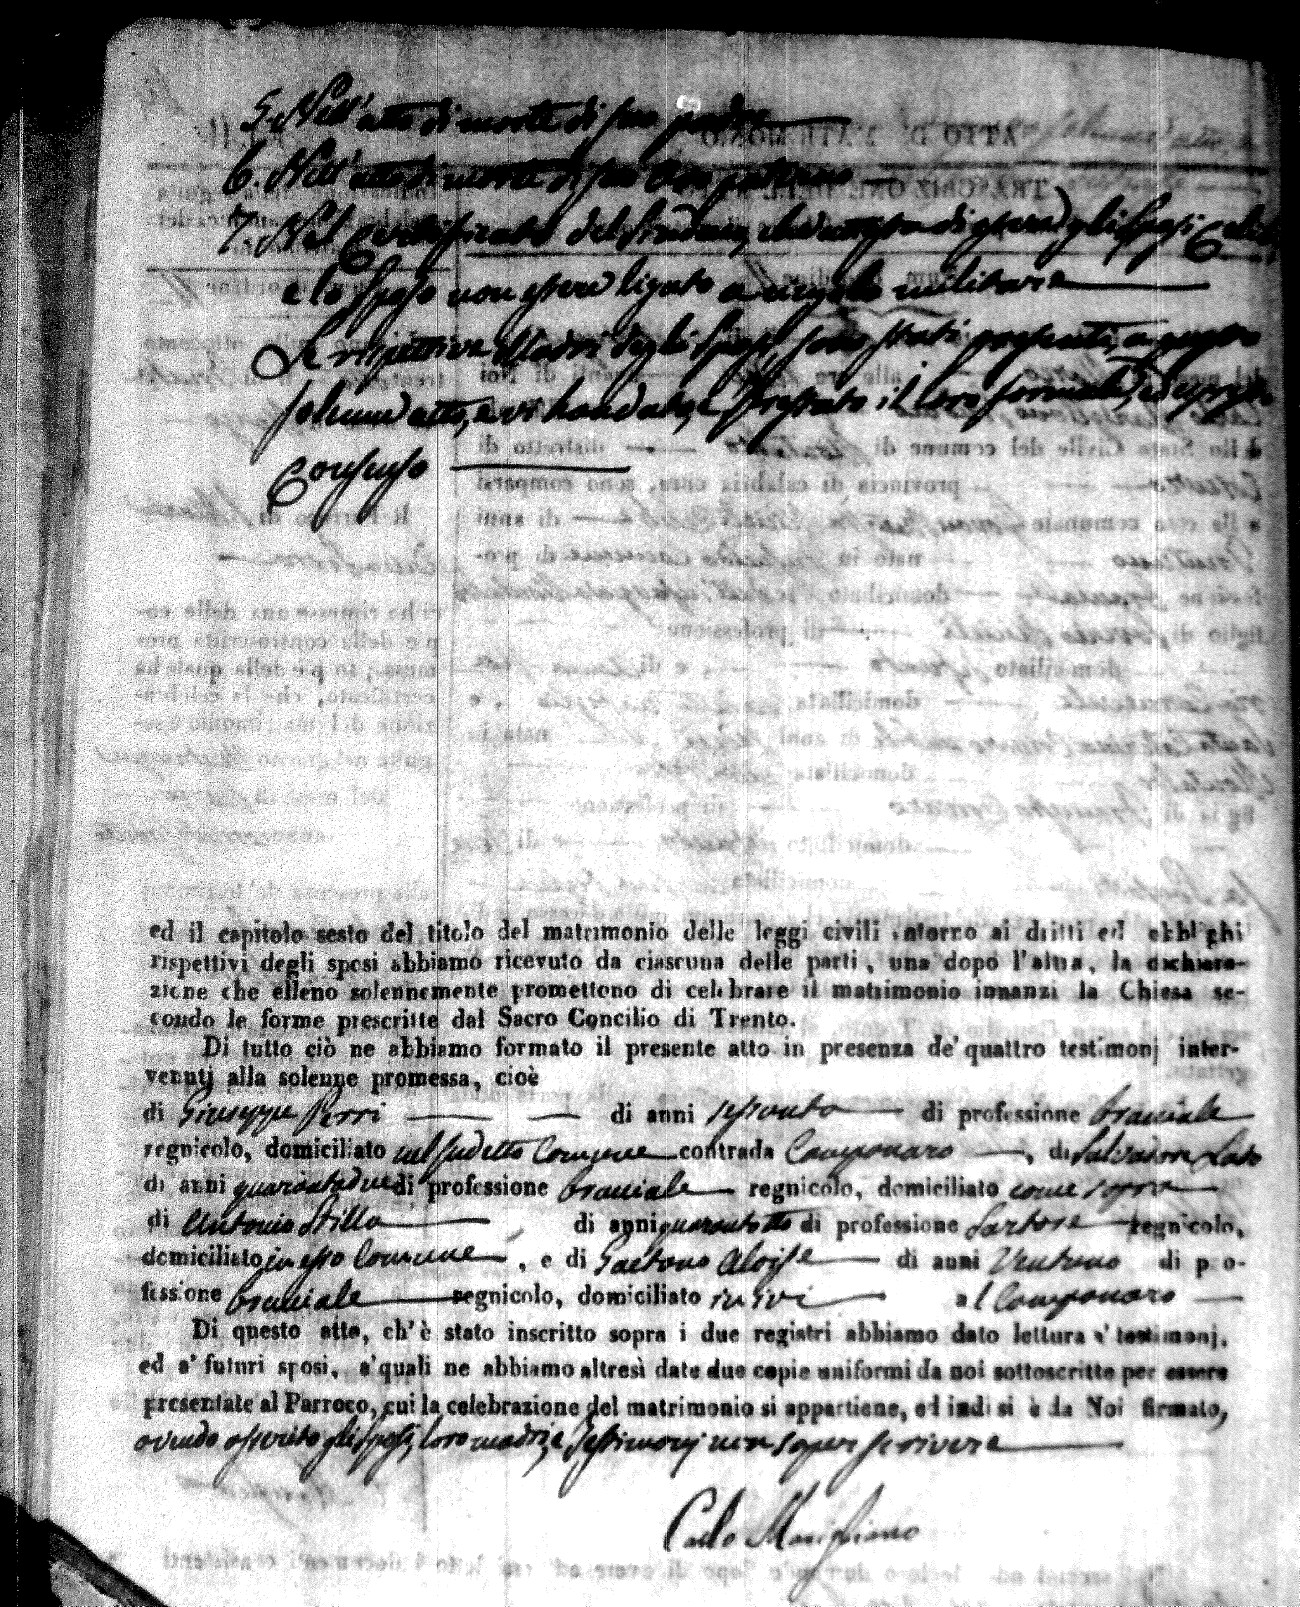 5. Nell'atto di morte di suo padre
6. Nell'atto di morte di suo avo paterno
7. Nel Certificato del Sindaco, che attesta di essere gli Sposi Celibi
e lo Sposo non essere ligato a vincolo militare
Le rispettive Madri degli Sposi, sono stati presenti a questo
solenne atto, e vi hanno dato, e prestato il loro formale, ed espresso
Consenso
ed il capitolo sesto del titolo del matrimonio delle leggi civili intorno ai dritti ed obblighi
rispettivi degli sposi abbiamo ricevuto da ciascuna delle parti, una dopo l'altra, la dichiara-
zione che elleno solennemente promettono di celebrare il matrimonio innanzi la Chiesa se-
condo le forme prescritte dal Sacro Concilio di Trento.
Di tutto ciò ne abbiamo formato il presente atto in presenza de' quattro testimonj inter-
venuti alla solenne promessa, cioè
di Giuseppe Perri di anni sessanta di professione bracciale
regnicolo, domiciliato nel sudetto Comune contrada Camponaro, di Salvadore
di anni quarantadue di professione bracciale regnicolo, domiciliato come sopra
di Antonio Stillo di anni quarantotto di professione Sartore regnicolo,
domiciliato in esso Comune, e di Gaetano Aloise di anni Ventuno di pro-
fessione bracciale regnicolo, domiciliato ivi al Camponaro
Di questo atto, ch'è stato inscritto sopra i due registri abbiamo dato lettura a' testimonj,
ed a' futuri sposi, a' quali ne abbiamo altresì date due copie uniformi da noi sottoscritte per essere
presentate al Parroco, cui la celebrazione del matrimonio si appartiene, ed indi si è da Noi firmato,
avendo asserito gli Sposi, loro madri, e Testimonj non saper scrivere
Carlo Marigliano